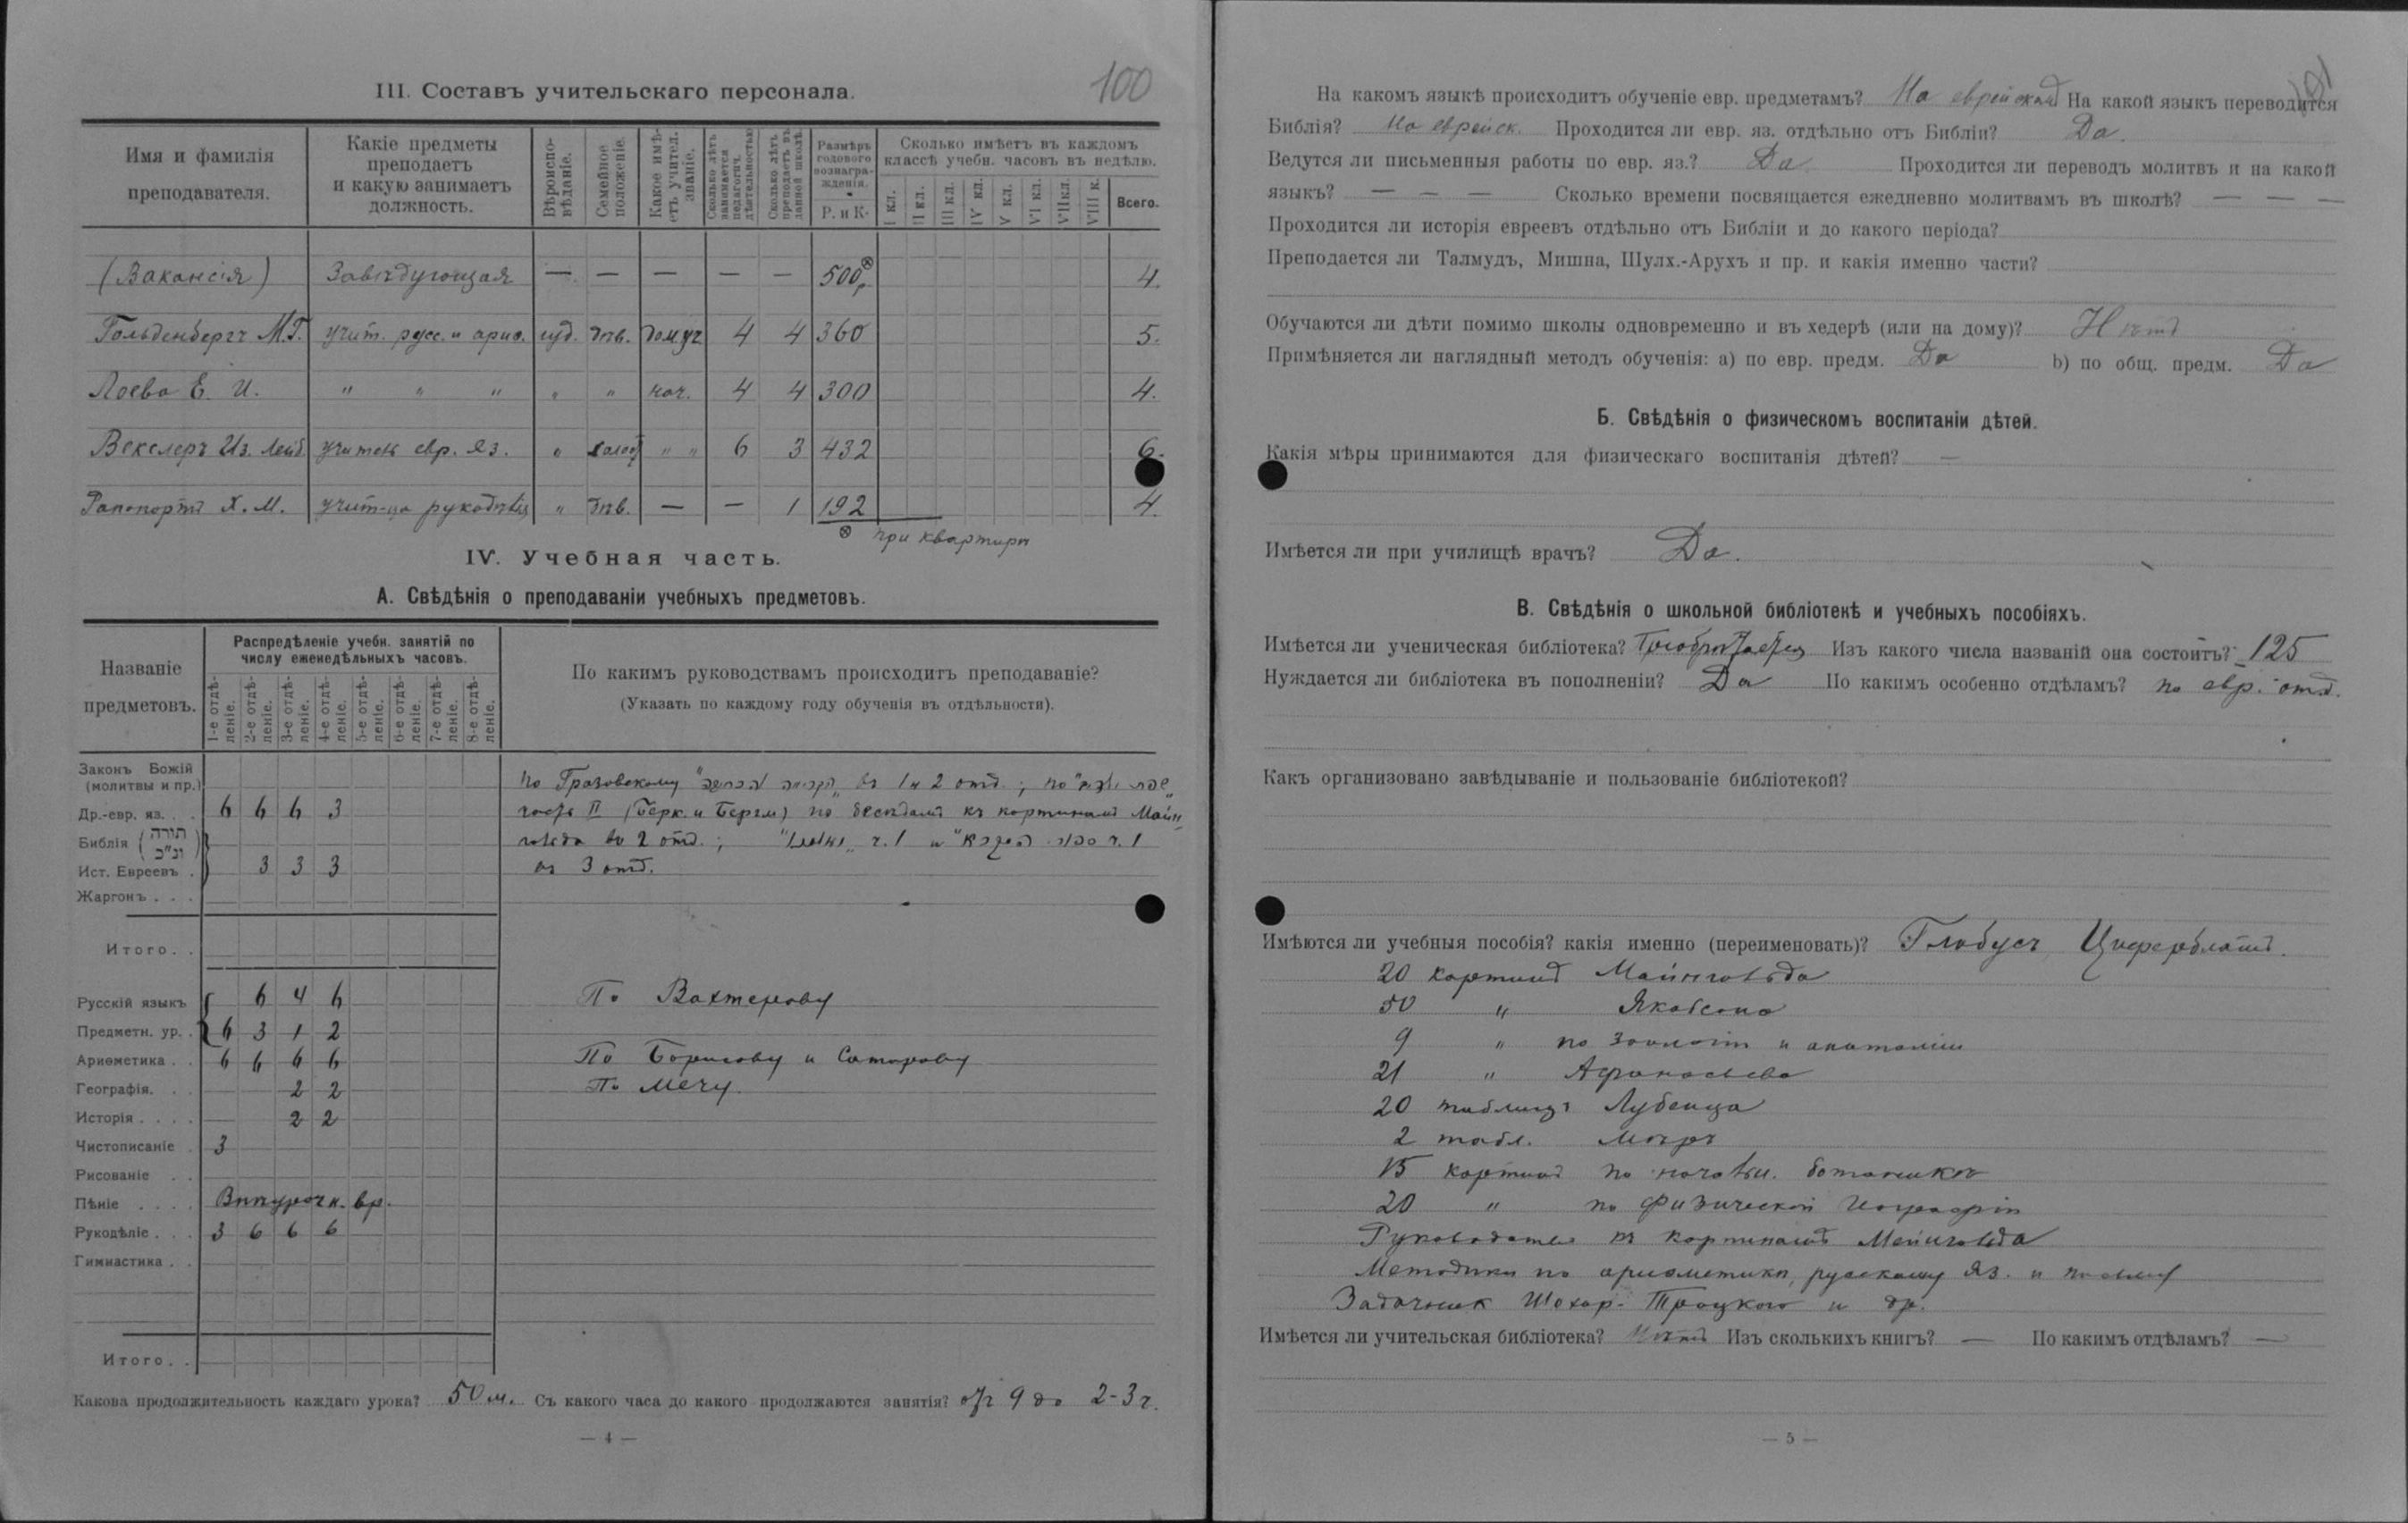 100
III. Составъ учительскаго персонала.
Имя и фамилія преподавателя.
Какіе предметы преподаетъ и какую занимаетъ должность.
Вѣроиспо-вѣданіе.
Семейное положеніе.
Какое имѣ-етъ учител. званіе.
Сколько лѣтъ занимается педагогич. дѣятельностью
Сколько лѣтъ преподаетъ въ данной школѣ
Размѣръ годового вознагра-жденія.
Р. и К.
Сколько имѣетъ въ каждомъ классѣ учебн. часовъ въ недѣлю.
I кл. II кл. III кл. IV кл. V кл. VI кл. VII кл. VIII к. Всего.
(Вакансія) Завѣдующая — — — — — 500 р. ⊗ 4.
Гольденбергъ М.Г. учит. русс. и ариѳ. іуд. дѣв. дом. уч. 4 4 360 5.
Лоева Е. И. " " " " " нач. 4 4 300 4.
Векслеръ Из. Лейб. учитель евр. яз. " холост " " 6 3 432 6.
Рапопортъ Х. М. учит-ца рукодѣлія " дѣв. — — 1 192 4.
⊗ при квартирѣ
IV. Учебная часть.
А. Свѣдѣнія о преподаваніи учебныхъ предметовъ.
Названіе предметовъ.
Распредѣленіе учебн. занятій по числу еженедѣльныхъ часовъ.
1-е отдѣ-леніе. 2-е отдѣ-леніе. 3-е отдѣ-леніе. 4-е отдѣ-леніе. 5-е отдѣ-леніе. 6-е отдѣ-леніе. 7-е отдѣ-леніе. 8-е отдѣ-леніе.
По какимъ руководствамъ происходитъ преподаваніе?
(Указать по каждому году обученія въ отдѣльности).
Законъ Божій (молитвы и пр.)
по Гразовскому въ 1 и 2 отд.; по
Др.-евр. яз. . . 6 6 6 3
часть II (Берк. и Бергм) по бесѣдамъ къ картинамъ Майн-
Библія (תורה ונ"כ)
гольда во 2 отд.; ч. 1 и ч. 1
Ист. Евреевъ . 3 3 3
въ 3 отд.
Жаргонъ . . .
Итого. .
Русскій языкъ 6 4 6 По Вахтерову
Предметн. ур. . 6 3 1 2
Ариѳметика . . 6 6 6 6 По Борисову и Сатарову
Географія. . . 2 2 По Мечу.
Исторія . . . . 2 2
Чистописаніе . 3
Рисованіе . .
Пѣніе . . . . Внѣурочн. вр.
Рукодѣліе . . . 3 6 6 6
Гимнастика . .
Итого. .
Какова продолжительность каждаго урока? 50 м. Съ какого часа до какого продолжаются занятія? отъ 9 до 2-3 ч.
— 4 —
101
На какомъ языкѣ происходитъ обученіе евр. предметамъ? На еврейскомъ На какой языкъ переводится
Библія? На еврейск. Проходится ли евр. яз. отдѣльно отъ Библіи? Да.
Ведутся ли письменныя работы по евр. яз.? Да Проходится ли переводъ молитвъ и на какой
языкъ? — — — Сколько времени посвящается ежедневно молитвамъ въ школѣ? — — —
Проходится ли исторія евреевъ отдѣльно отъ Библіи и до какого періода?
Преподается ли Талмудъ, Мишна, Шулх.-Арухъ и пр. и какія именно части?
Обучаются ли дѣти помимо школы одновременно и въ хедерѣ (или на дому)? Нѣтъ
Примѣняется ли наглядный методъ обученія: а) по евр. предм. Да b) по общ. предм. Да
Б. Свѣдѣнія о физическомъ воспитаніи дѣтей.
Какія мѣры принимаются для физическаго воспитанія дѣтей? —
Имѣется ли при училищѣ врачъ? Да.
В. Свѣдѣнія о школьной библіотекѣ и учебныхъ пособіяхъ.
Имѣется ли ученическая библіотека? Изъ какого числа названій она состоитъ? 125
Нуждается ли библіотека въ пополненіи? Да По какимъ особенно отдѣламъ? по евр. отд.
Какъ организовано завѣдываніе и пользованіе библіотекой?
Имѣются ли учебныя пособія? какія именно (переименовать)? Глобусъ Циферблатъ.
20 картинъ Майнгольда
50 " Якобсона
9 " по зоологіи и анатоміи
21 " Афанасьева
20 таблицъ Лубенца
2 табл. мѣръ
15 картинъ по начальн. ботаникѣ
20 " по физической географіи
Руководство къ картинамъ Мейнгольда
Методики по ариѳметикѣ, русскому яз. и письму
Задачникъ Шохор-Троцкого и др.
Имѣется ли учительская библіотека? Нѣтъ Изъ сколькихъ книгъ? — По какимъ отдѣламъ? —
— 5 —